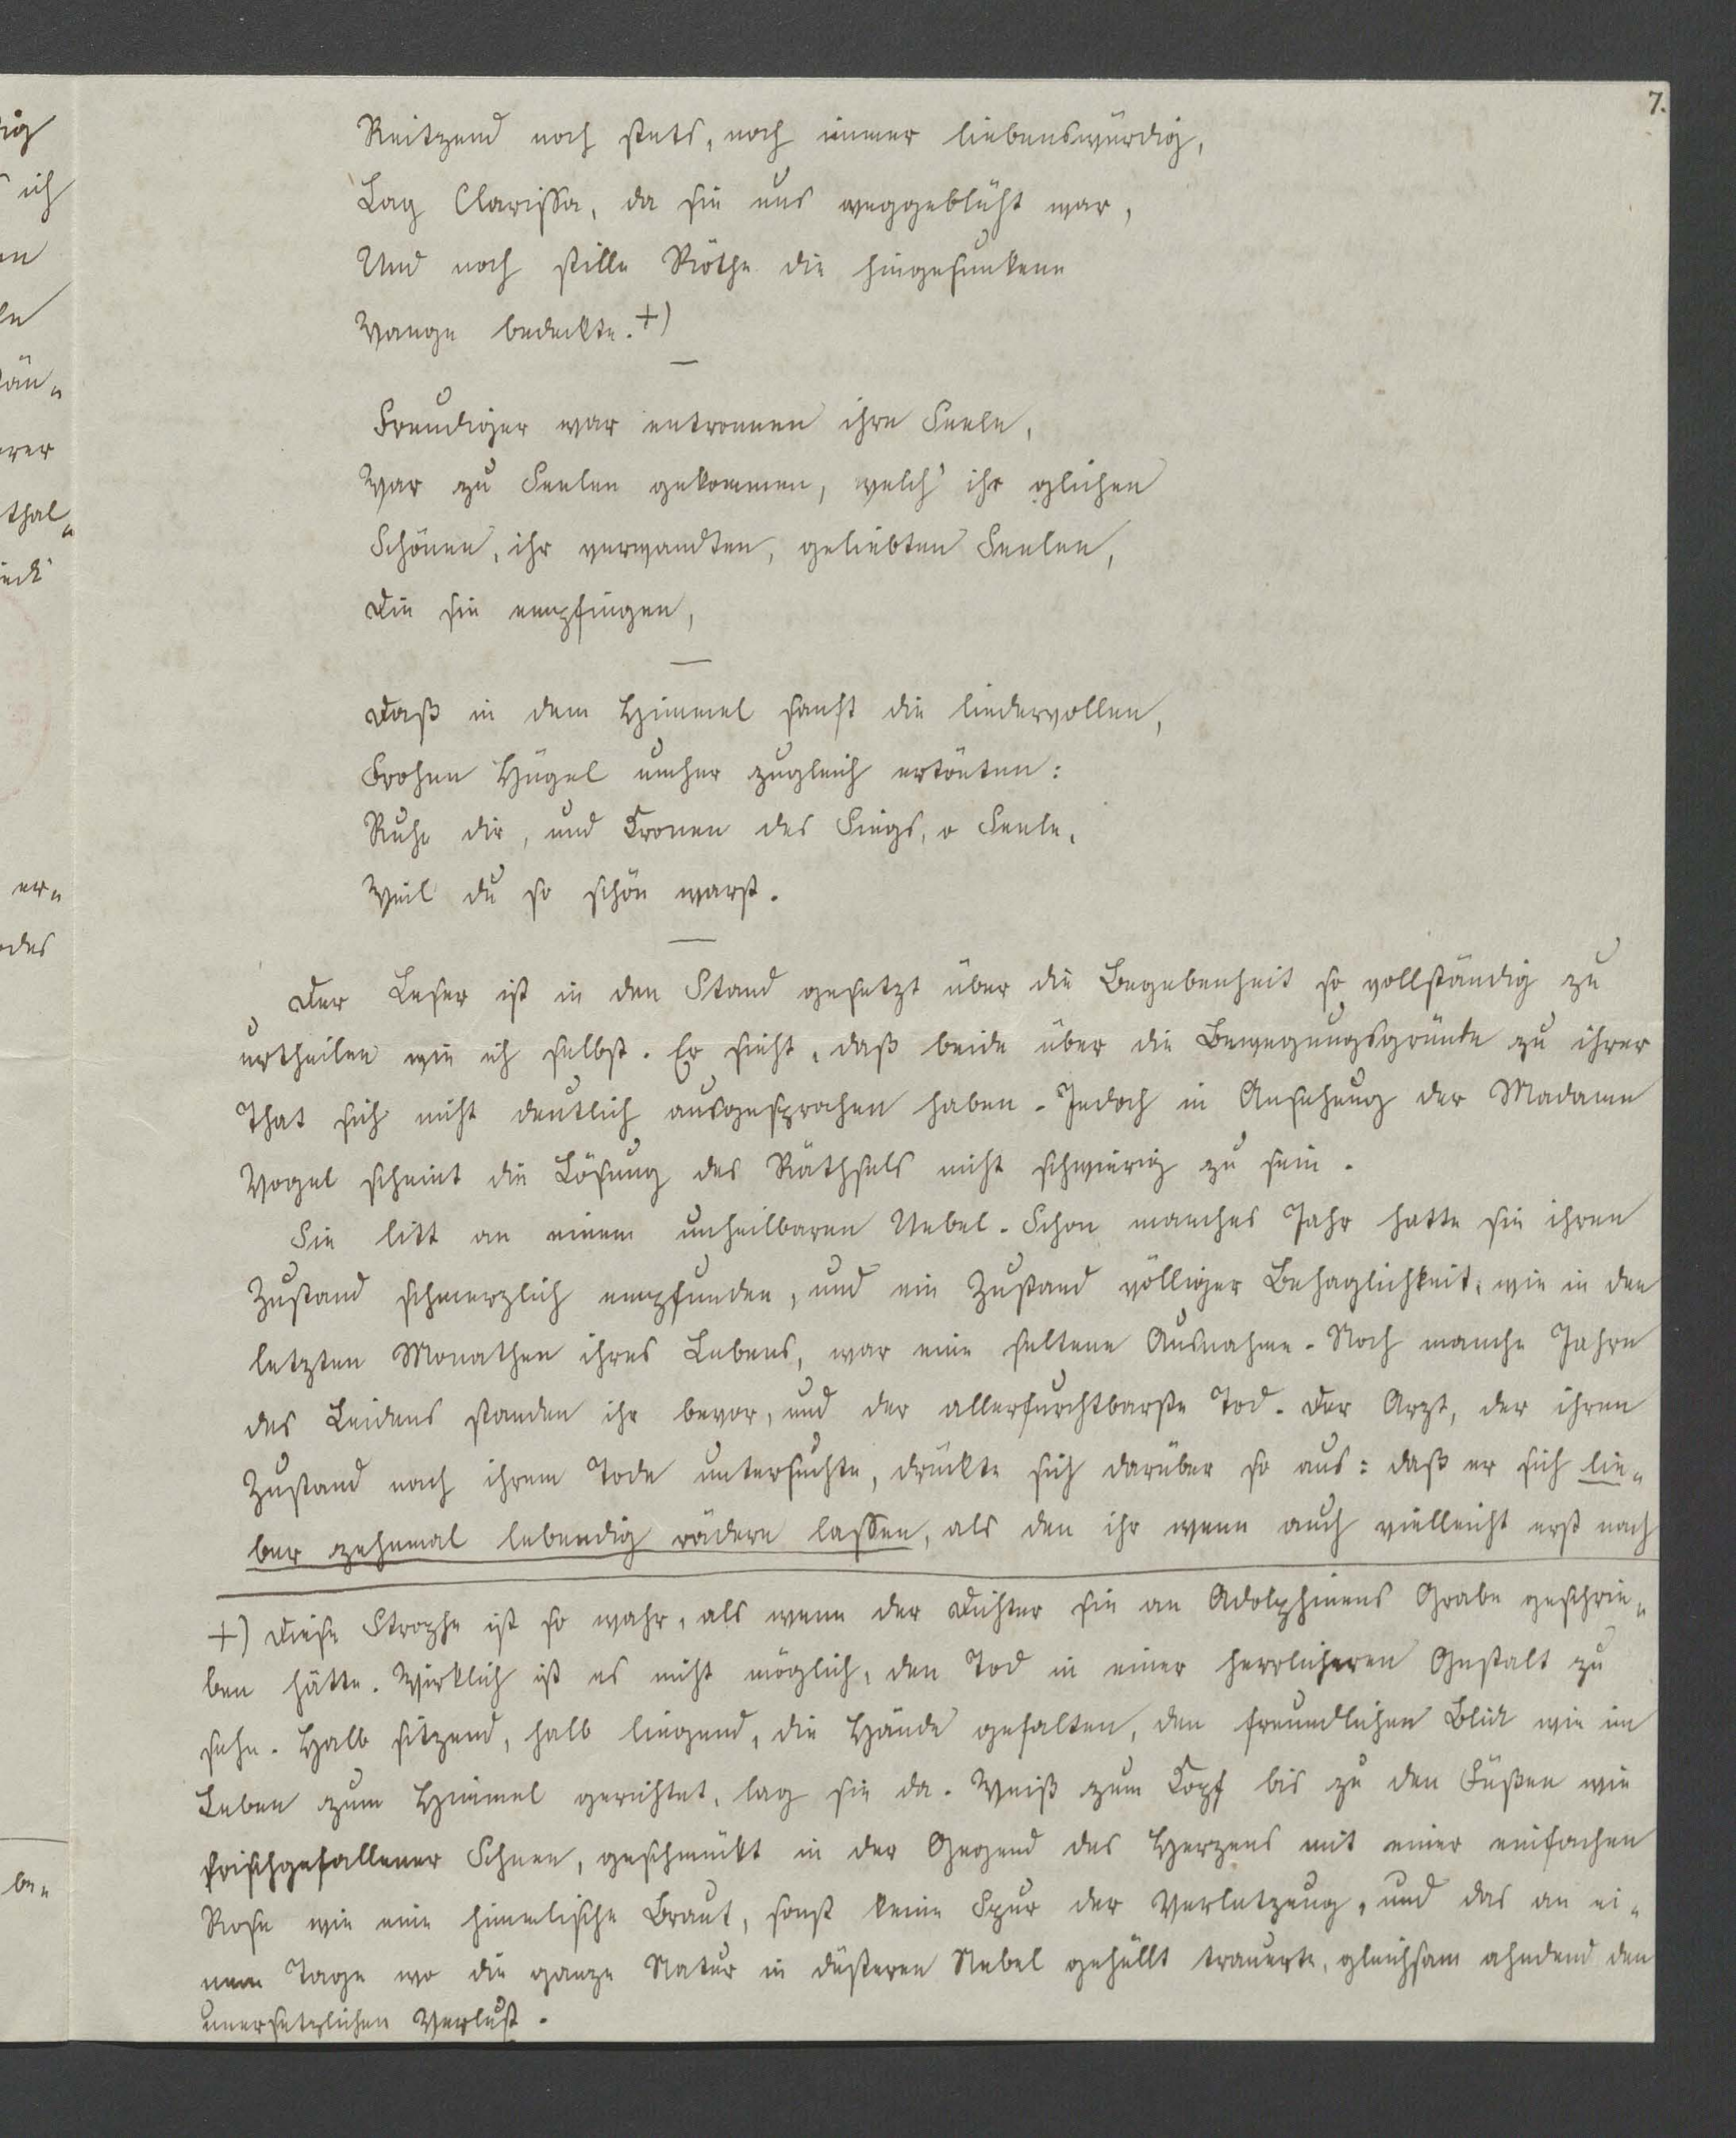 7.
Reitzend noch stets, noch immer liebenswürdig,
Lag Clarissa, da sie uns weggeblüht war,
Und noch stille Röthe die hingesunkene
Wange bedeckte. +)
Freudiger war entronnen ihre Seele,
War zu Seelen gekommen, welch' ihr glichen
Schönen, ihr verwandten, geliebten Seelen,
Die sie empfingen,
Daß in dem Himmel sanft die liedervollen,
Frohen Hügel umher zugleich ertönten:
Ruhe dir, und Kronen des Siegs, o Seele,
Weil du so schön warst.
Der Leser ist in den Stand gesetzt über die Begebenheit so vollständig zu
urtheilen wie ich selbst. Er sieht, daß beide über die Bewegungsgründe zu ihrer
That sich nicht deutlich ausgesprochen haben. Jedoch in Ansehung der Madame
Vogel scheint die Lösung des Räthsels nicht schwierig zu sein.
Sie litt an einem unheilbaren Uebel. Schon manches Jahr hatte sie ihren
Zustand schmerzlich empfunden, und ein Zustand völliger Behaglichkeit, wie in den
letzten Monathen ihres Lebens, war eine seltene Ausnahme. Noch manche Jahre
des Leidens standen ihr bevor, und der allerfurchtbarste Tod. Der Arzt, der ihren
Zustand nach ihrem Tode untersuchte, drückte sich darüber so aus: daß er sich lie-
ber zehnmal lebendig rädern lassen, als den ihr wenn auch vielleicht erst nach
+) Diese Strophe ist so wahr, als wenn der Dichter sie an Adolphinens Grabe geschrie-
ben hätte. Wirklich ist es nicht möglich, den Tod in einer herrlicheren Gestalt zu
sehn. Halb sitzend, halb liegend, die Hände gefalten, den freundlichen Blick wie im
Leben zum Himmel gerichtet, lag sie da. Weiß zum Kopf bis zu den Füßen wie
frischgefallener Schnee, geschmückt in der Gegend des Herzens mit einer einfachen
Rose wie eine himmlische Braut, sonst keine Spur der Verletzung, und das an ei-
nem Tage wo die ganze Natur in düsteren Nebel gehüllt trauerte, gleichsam ahndend den
unersetzlichen Verlust.